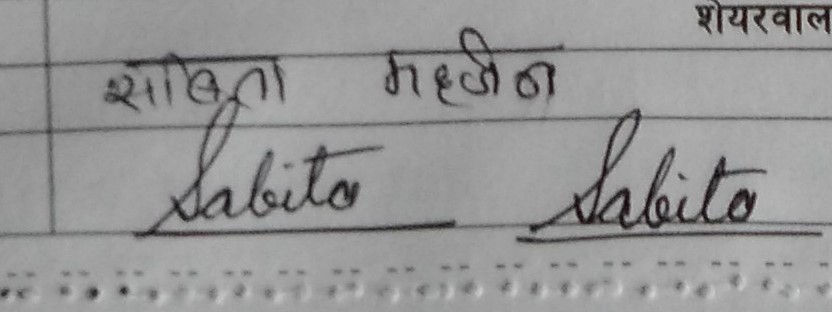 शेयरवाल
साबिता महर्जन
Sabita Sabita